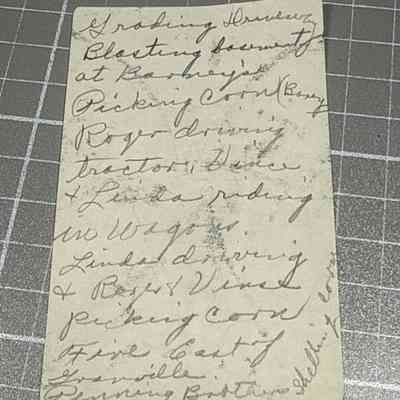 Grading Driveway
Blasting basement
at Barney's
Picking Corn (Barney
Roger driving
tractor, Vince
& Linda riding
in Wagons.
Linda driving
& Roger & Vince
picking corn
Fire East of
Granville.
Brothers
Shelling corn